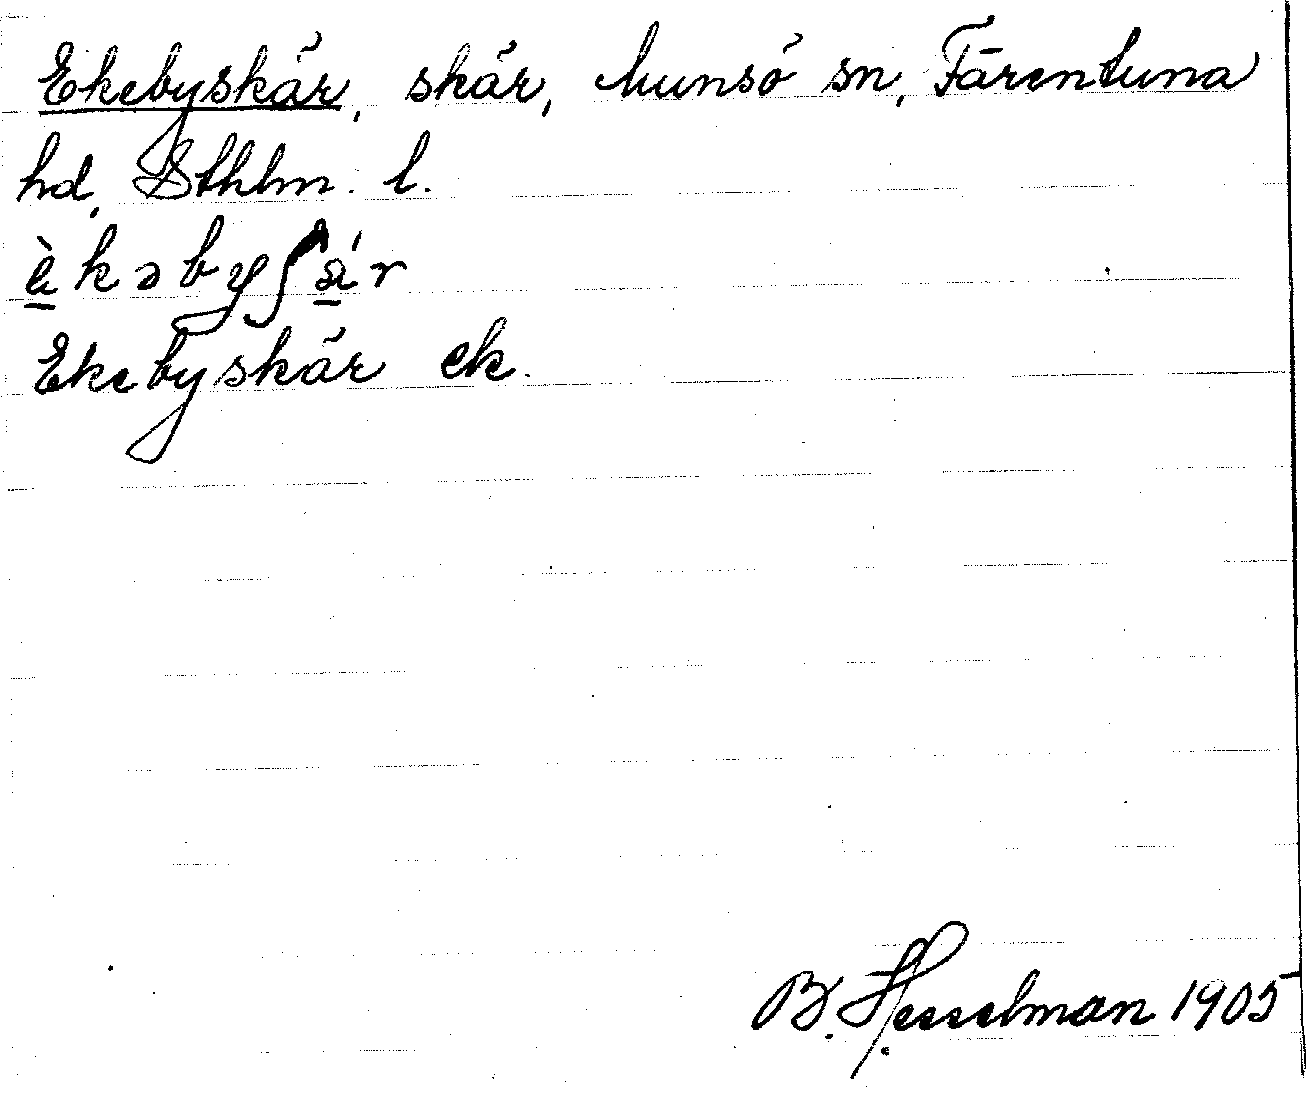 Ekebyskär, skär, Munsö sn, Färentuna
hd, Sthlm. l.
è̱kəbyʃä̱́r
Ekebyskär ek.
B. Hesselman 1905